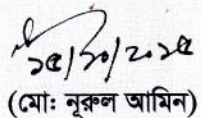 ১৫/১০/২০১৫
(মোঃ নূরুল আমিন)